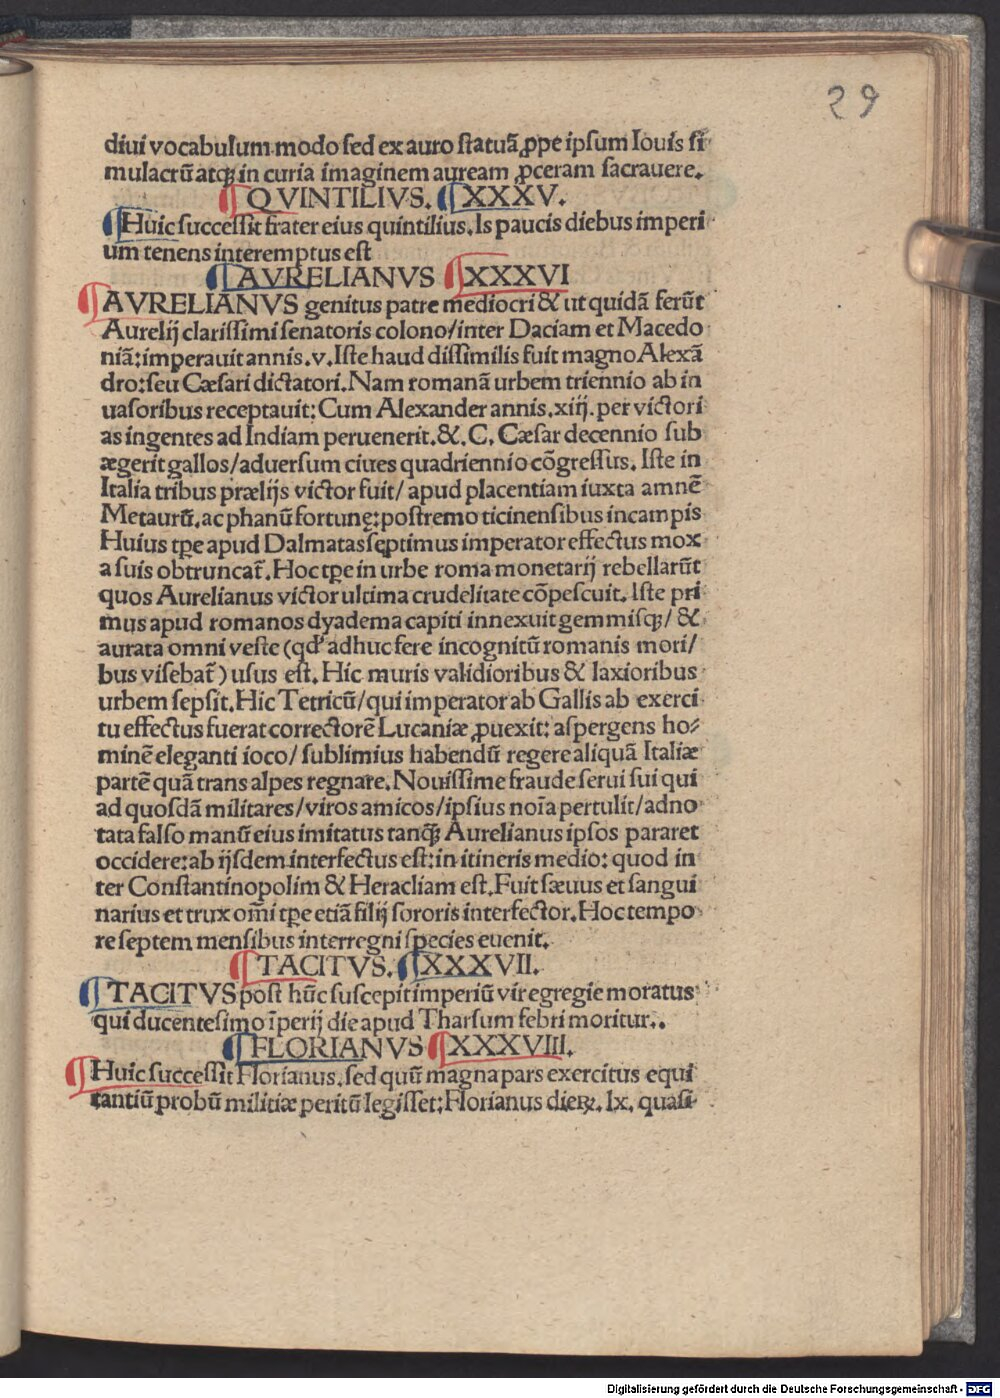 29
diui vocabulum modo sed ex auro statuā ꝓpe ipsum Iouis si
mulacrū atqꝫ in curia imaginem auream ꝓceram sacrauere.
¶ QVINTILIVS. ¶ XXXV.
¶ Huic successit frater eius quintilius. Is paucis diebus imperi
um tenens interemptus est
¶ AVRELIANVS ¶ XXXVI
¶ AVRELIANVS genitus patre mediocri & ut quidā ferūt
Aurelij clarissimi senatoris colono/inter Daciam et Macedo
niā: imperauit annis .v. Iste haud dissimilis fuit magno Alexā
dro: seu Cæsari dictatori. Nam romanā urbem triennio ab in
uasoribus receptauit: Cum Alexander annis .xiij. per victori
as ingentes ad Indiam peruenerit. &. C. Cæsar decennio sub
ægerit gallos/aduersum ciues quadriennio cōgressus. Iste in
Italia tribus prælijs victor fuit/ apud placentiam iuxta amnē
Metaurū. ac phanū fortunę: postremo ticinensibus in campis
Huius tp̄e apud Dalmatas sęptimus imperator effectus mox
a suis obtruncat̄. Hoc tp̄e in urbe roma monetarij rebellarūt
quos Aurelianus victor ultima crudelitate cōpescuit. Iste pri
mus apud romanos dyadema capiti innexuit gemmisqꝫ/ &
aurata omni veste (qd' adhuc fere incognitū romanis mori/
bus visebat̄) usus est. Hic muris validioribus & laxioribus
urbem sepsit. Hic Tetricū/qui imperator ab Gallis ab exerci
tu effectus fuerat correctorē Lucaniæ ꝓuexit: aspergens ho⸗
minē eleganti ioco/ sublimius habendū regere aliquā Italiæ
partē quā trans alpes regnare. Nouissime fraude serui sui qui
ad quosdā militares/viros amicos/ipsius noīa pertulit/adno
tata falso manū eius imitatus tanqꝫ Aurelianus ipsos pararet
occidere: ab ijsdem interfectus est: in itineris medio: quod in
ter Constantinopolim & Heracliam est. Fuit sæuus et sangui
narius et trux om̄i tp̄e etiā filij sororis interfector. Hoc tempo
re septem mensibus interregni species euenit.
¶ TACITVS. ¶ XXXVII.
¶ TACITVS post hūc suscepit imperiū vir egregie moratus
qui ducentesimo īperij die apud Tharsum febri moritur..
¶ FLORIANVS ¶ XXXVIII.
¶ Huic successit Florianus. sed quū magna pars exercitus equi
tantiū probū militiæ peritū legisset: Florianus dieꝝ. lx. quasi
Digitalisierung gefördert durch die Deutsche Forschungsgemeinschaft - DFG